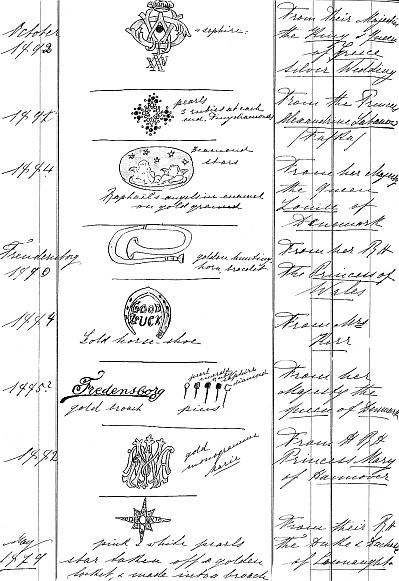 October
1892
saphire.
From Their Majesties
the King & Queen
of Greece
Silver Wedding
189
pearls
3 rubies at each
end. Tiny diamonds
From the Princess
Alexandrine Labanow
1884
diamond
stars
Raphael's angels in enamel
on gold ground
From her Majesty
the Queen
Louise of
Denmark
Fredensborg
1890
golden hunting
horn bracelet
From her R H
The Princess of
Wales
GOOD
LUCK
Gold horse-shoe
From Mrs
Kerr
1885?
Fredensborg
gold broach
pearl
emerald
saphire
diamond
pins
From her
Majesty the
queen of Denmark
1882
gold
monogramme
From H R H
Princess Mary
of Hannover
May
1879
pink & white pearls
star taken off a golden
locket, & made into a broach
From their R H
the Duke & Duchess
of Connaught